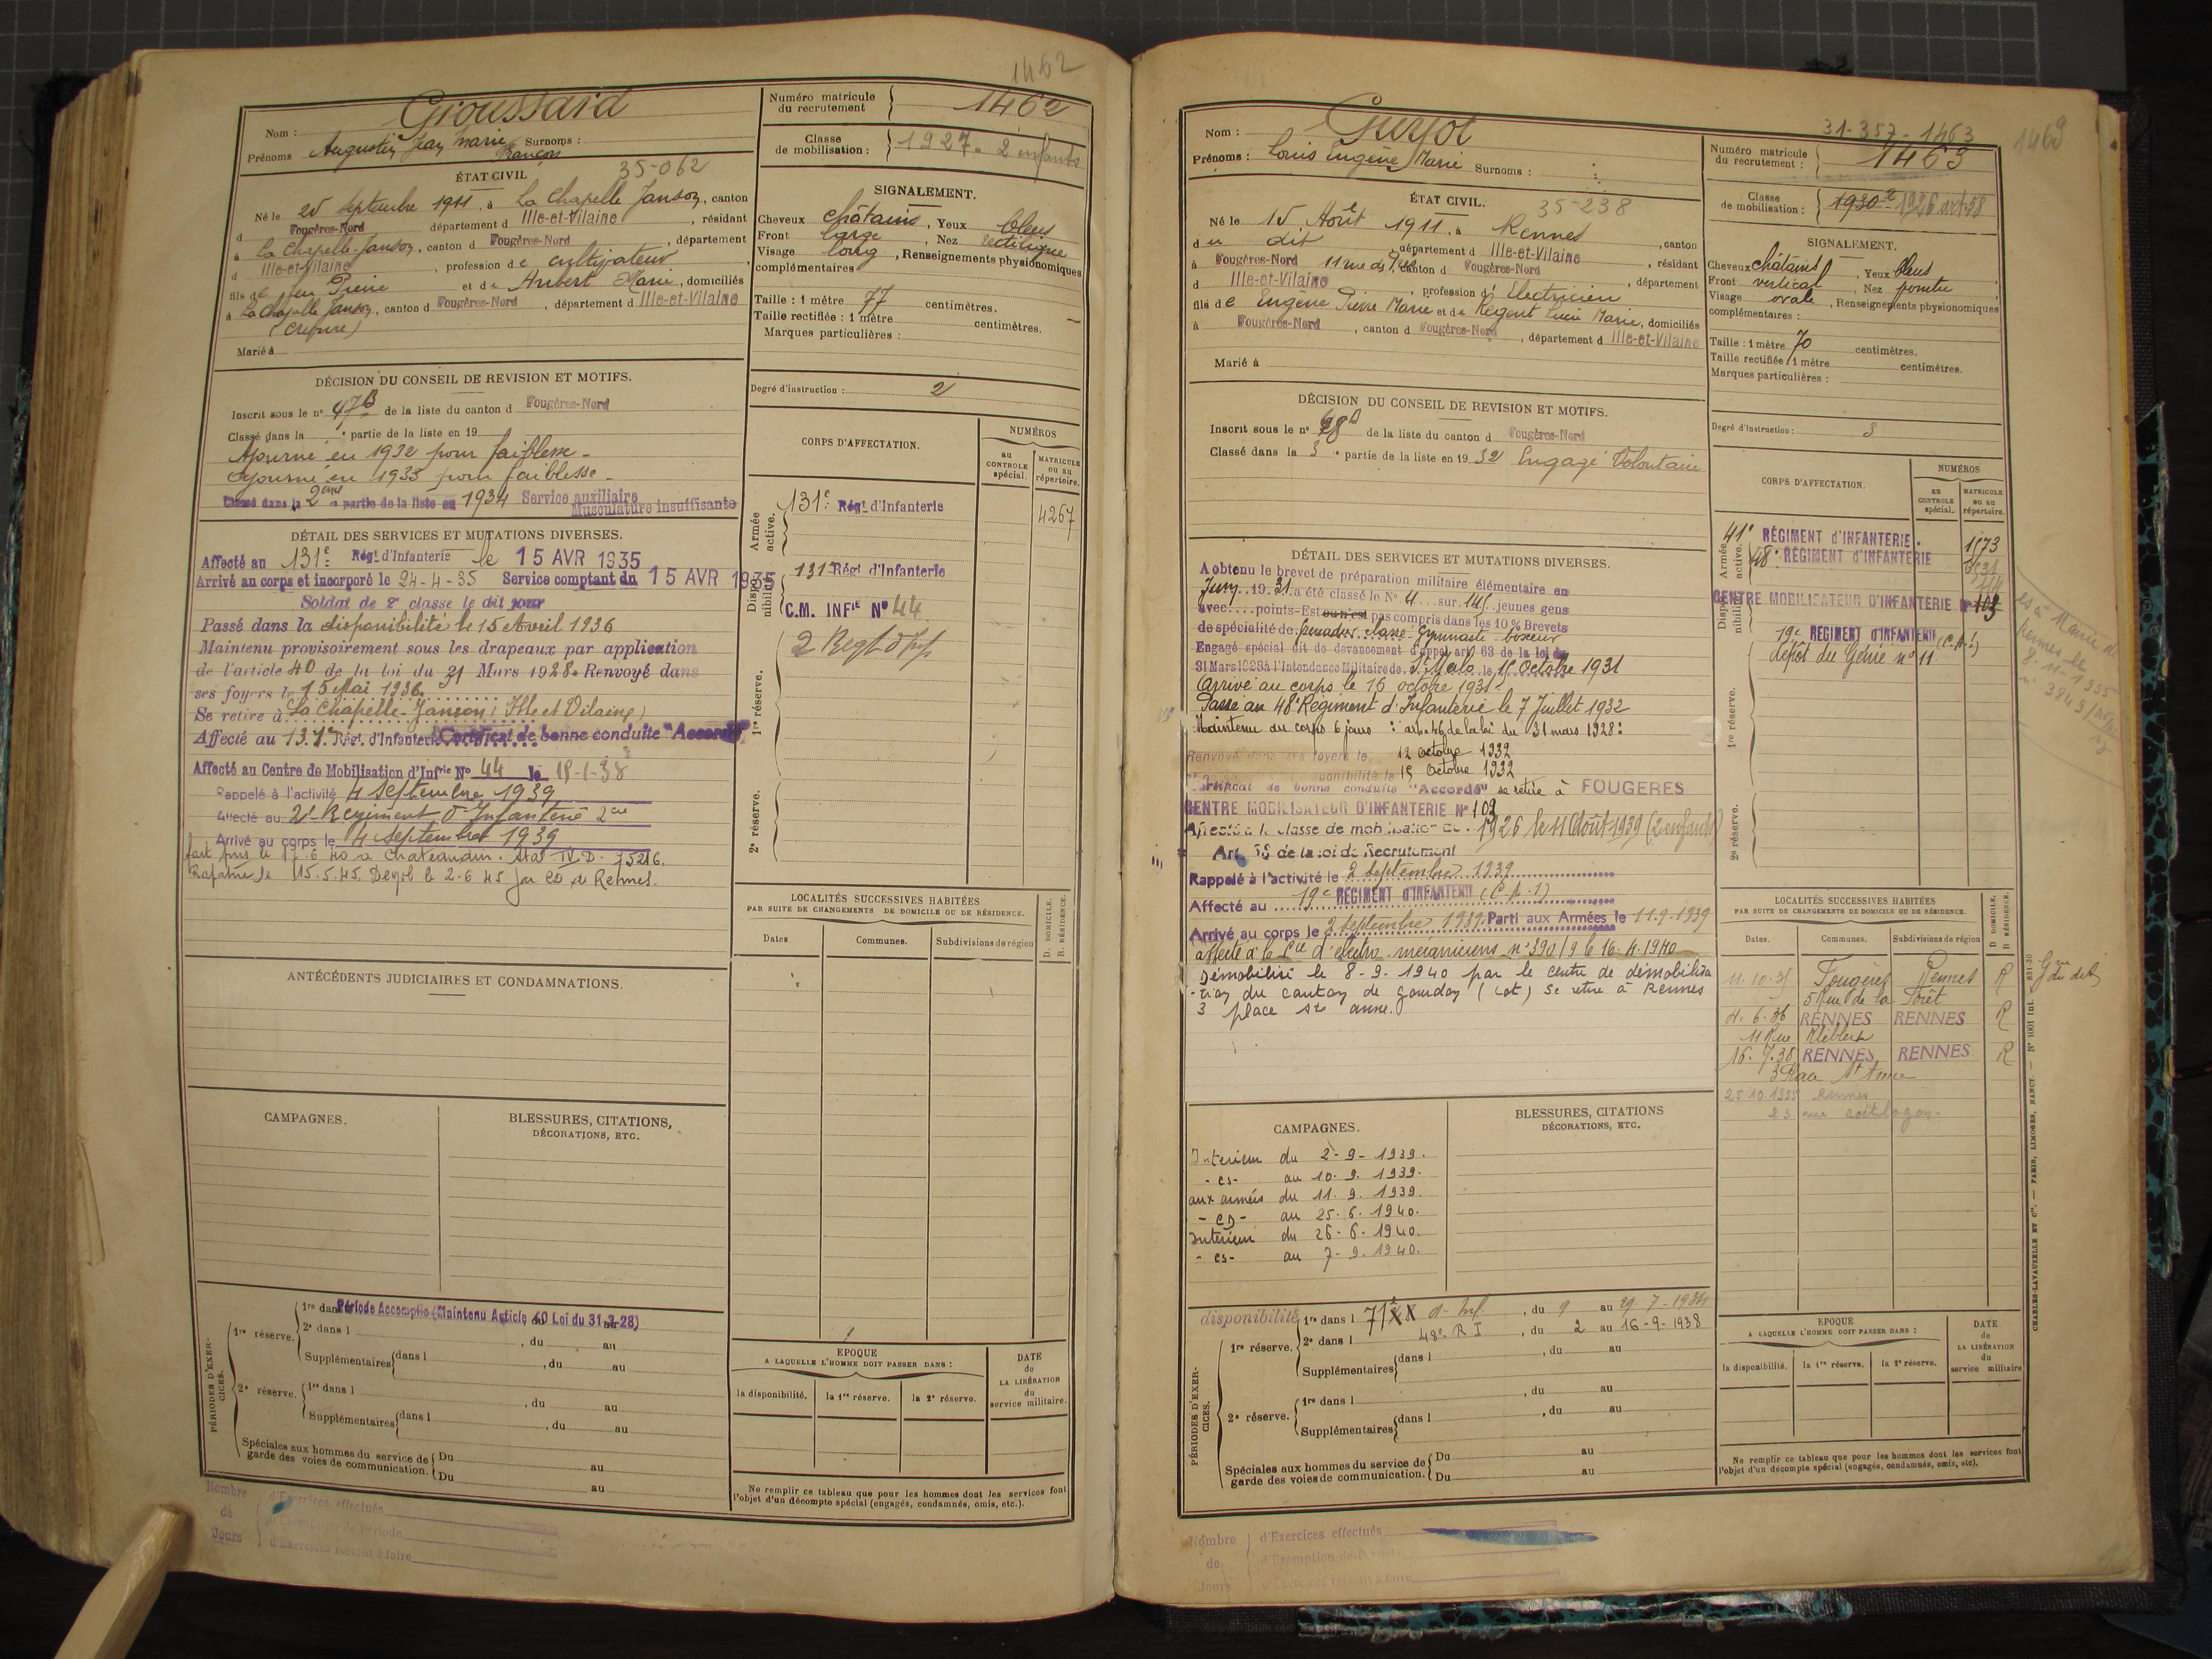 1462
Nom : Groussard
Prénoms Augustin Jean Marie Surnoms :
François
Numéro matricule du recrutement 1462
Classe de mobilisation : 1927 - 2 enfants
ÉTAT CIVIL 35-062
Né le 25 Septembre 1911, à La Chapelle Janson, canton
d Fougères-Nord département d Ille-et-Vilaine, résidant
à La Chapelle-Janson, canton d Fougères-Nord, département
d Ille-et-Vilaine, profession de cultivateur
fils de feu Pierre et de Hubert Marie, domiciliés
à La Chapelle Janson, canton d Fougères-Nord, département d Ille-et-Vilaine
Marié à
SIGNALEMENT.
Cheveux châtains, Yeux bleus
Front large, Nez rectiligne
Visage long, Renseignements physionomiques
complémentaires
Taille : 1 mètre 77 centimètres.
Taille rectifiée : 1 mètre centimètres.
Marques particulières :
Degré d'instruction : 2
DÉCISION DU CONSEIL DE REVISION ET MOTIFS.
Inscrit sous le n° 47 B de la liste du canton d Fougères-Nord
Classé dans la e partie de la liste en 19
Ajourné en 1932 pour faiblesse -
Ajourné en 1933 pour faiblesse -
Classé dans la 2eme partie de la liste en 1934 Service auxiliaire
Musculature insuffisante
DÉTAIL DES SERVICES ET MUTATIONS DIVERSES.
Affecté au 131e Régt d'Infanterie le 15 AVR 1935
Arrivé au corps et incorporé le 24-4-35 Service comptant du 15 AVR 1935
Soldat de 2e classe le dit jour
Passé dans la disponibilité le 15 Avril 1936
Maintenu provisoirement sous les drapeaux par application
de l'article 40 de la loi du 31 Mars 1928. Renvoyé dans
ses foyers le 15 Mai 1936.
Se retire à La Chapelle-Janson (Ille et Vilaine)
Affecté au 131e Régt d'Infanterie Certificat de bonne conduite "Accordé"
Affecté au Centre de Mobilisation d'Infrie N° 44 le 15-1-38
Rappelé à l'activité 4 septembre 1939
Affecté au 2e Régiment d'Infanterie
Arrivé au corps le 4 septembre 1939
fait pris le 17.6.40 à Chateaudun. Stal IV.D. 75216.
Rapatrié le 15.5.45. Démob le 2.6.45 par CD de Rennes.
CORPS D'AFFECTATION.
NUMÉROS
au CONTROLE spécial.
MATRICULE ou au répertoire.
Armée active.
131e Régt d'Infanterie
4267
Disponibilité
131e Régt d'Infanterie
C.M. INFIE N° 44
1re réserve.
2 Regt d'Inf
2e réserve.
LOCALITÉS SUCCESSIVES HABITÉES
PAR SUITE DE CHANGEMENTS DE DOMICILE OU DE RÉSIDENCE.
Dates Communes. Subdivisions de région
D. DOMICILE. R. RÉSIDENCE.
ANTÉCÉDENTS JUDICIAIRES ET CONDAMNATIONS.
CAMPAGNES.
BLESSURES, CITATIONS,
DÉCORATIONS, ETC.
PÉRIODES D'EXERCICES.
1re réserve. 1re dans Période Accomplie (Maintenu Article 40 Loi du 31-3-28)
2e dans l , du au
Supplémentaires dans l , du au
2e réserve. 1re dans l , du au
Supplémentaires dans l , du au
Spéciales aux hommes du service de garde des voies de communication. Du au
Du au
EPOQUE
A LAQUELLE L'HOMME DOIT PASSER DANS :
la disponibilité. la 1re réserve. la 2e réserve.
DATE de LA LIBÉRATION du service militaire.
Ne remplir ce tableau que pour les hommes dont les services font
l'objet d'un décompte spécial (engagés, condamnés, omis, etc.).
Nombre de Jours
d'Exercices effectués
d'Exemption de Période
d'Exercices restant à faire
31-357-1463
1463
Nom : Guyot
Prénoms : Louis Eugène Marie Surnoms :
Numéro matricule du recrutement : 1463
Classe de mobilisation : 1930 1926 art 58
ÉTAT CIVIL. 35-238
Né le 15 Août 1911, à Rennes, canton
du dit, département d Ille-et-Vilaine, résidant
à Fougères-Nord 11 rue des canton d Fougères-Nord, département
d Ille-et-Vilaine, profession d'Electricien
fils de Eugène Pierre Marie et de Régent Lucie Marie, domiciliés
à Fougères-Nord, canton d Fougères-Nord, département d Ille-et-Vilaine
Marié à
SIGNALEMENT.
Cheveux châtains, Yeux bleus
Front vertical, Nez pointu
Visage ovale, Renseignements physionomiques
complémentaires :
Taille : 1 mètre 70 centimètres.
Taille rectifiée 1 mètre centimètres.
Marques particulières :
Degré d'instruction : 3
DÉCISION DU CONSEIL DE REVISION ET MOTIFS.
Inscrit sous le n° de la liste du canton d Fougères-Nord
Classé dans la 3e partie de la liste en 1932 Engagé Volontaire
DÉTAIL DES SERVICES ET MUTATIONS DIVERSES.
A obtenu le brevet de préparation militaire élémentaire en
Juin 1931 a été classé le N° 4 sur 141 jeunes gens
avec points-Est ou n'est pas compris dans les 10 % Brevets
de spécialité de Grenadier Gymnaste boxeur
Engagé spécial dit de devancement d'appel art. 63 de la loi du
31 Mars 1928 à l'Intendance Militaire de St Malo le 15 Octobre 1931
Arrivé au corps le 16 octobre 1931.
Passé au 48e Régiment d'Infanterie le 7 Juillet 1932
Maintenu au corps 6 jours : art. 46 de la loi du 31 mars 1928 :
Renvoyé dans ses foyers le 12 octobre 1932
disponibilité le 15 Octobre 1932
Certificat de bonne conduite "Accordé" se retire à FOUGERES
CENTRE MOBILISATEUR D'INFANTERIE N° 103
Affecté à la classe de mobilisation de 1926 le 11 Août 1939 (2 enfants)
Art. 58 de la loi de Recrutement
Rappelé à l'activité le 2 Septembre 1939
Affecté au 19e RÉGIMENT D'INFANTERIE (C.A.1)
Arrivé au corps le 2 Septembre 1939 Parti aux Armées le 11.9.1939
affecté à la Cie d'électro-mécaniciens n° 390/9 le 16.4.1940
Démobilisé le 8-9-1940 par le centre de démobilisa
-tion du canton de gourdon (Lot) Se retire à Rennes
3 place Ste anne.
CORPS D'AFFECTATION.
NUMÉROS
au CONTROLE spécial.
MATRICULE ou au répertoire.
Armée active.
41e RÉGIMENT D'INFANTERIE. 1173
48e RÉGIMENT D'INFANTERIE
Disponibilité
CENTRE MOBILISATEUR D'INFANTERIE N° 103
19e RÉGIMENT D'INFANTERIE (C.A.1)
dépôt du Génie n° 11
1re réserve.
2e réserve.
LOCALITÉS SUCCESSIVES HABITÉES
PAR SUITE DE CHANGEMENTS DE DOMICILE OU DE RÉSIDENCE.
Dates. Communes. Subdivisions de région
D. DOMICILE. R. RÉSIDENCE.
11.10.31 Fougères Rennes R
5 Rue de la Forêt
4.6.36 RENNES RENNES R
11 Rue Kléber
16.7.38 RENNES RENNES R
3 Place St Anne
25.10.1955 Rennes
23 rue coëtlogon
CAMPAGNES.
Intérieur du 2-9-1939.
-cs- au 10.9.1939.
aux armées du 11.9.1939.
-cs- au 25.6.1940.
Intérieur du 26-6-1940.
-cs- au 7-9-1940.
BLESSURES, CITATIONS
DÉCORATIONS, ETC.
PÉRIODES D'EXERCICES.
disponibilité 1re dans l 71e d'Inf. , du 9 au 29-7-1934
1re réserve. 2e dans l 48e R I , du 2 au 16-9-1938
Supplémentaires dans l , du au
2e réserve. 1re dans l , du au
Supplémentaires dans l , du au
Spéciales aux hommes du service de garde des voies de communication. Du au
Du au
EPOQUE
A LAQUELLE L'HOMME DOIT PASSER DANS :
la disponibilité. la 1re réserve. la 2e réserve.
DATE de LA LIBÉRATION du service militaire
Ne remplir ce tableau que pour les hommes dont les services font
l'objet d'un décompte spécial (engagés, condamnés, omis, etc).
Nombre de Jours
d'Exercices effectués
d'Exemption de Période
d'Exercices restant à faire
CHARLES-LAVAUZELLE ET Cie. — PARIS, LIMOGES, NANCY. — N° 1001 Int.